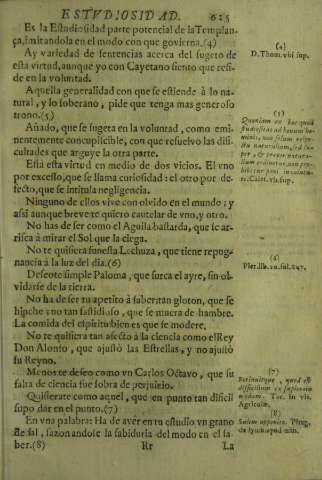 ESTVDIOSIDAD. 625
Es la Estudiosidad parte potencial de la Templan-
ça, imitandola en el modo con que govierna.(4)
Ay variedad de sentencias acerca del sugeto de
esta virtud, aunque yo con Cayetano siento que resi-
de en la voluntad.
Aquella generalidad con que se estiende à lo na-
tural, y lo soberano, pide que tenga mas generoso
trono.(5)
Añado, que se sugeta en la voluntad, como emi-
nentemente concupiscible, con que resuelvo las difi-
cultades que arguye la otra parte.
Està esta virtud en medio de dos vicios. El vno
por excesso, que se llama curiosidad: el otro por de-
fecto, que se intitula negligencia.
Ninguno de ellos vive con olvido en el mundo; y
assi aunque breve te quiero cautelar de vno, y otro.
No has de ser como el Aguila bastarda, que se ar-
risca à mirar el Sol que la ciega.
No te quisiera funesta Lechuza, que tiene repug-
nancia à la luz del dia.(6)
Deseote simple Paloma, que surca el ayre, sin ol-
vidarse de la tierra.
No ha de ser tu apetito à saber tan gloton, que se
hinche; no tan fastidioso, que se muera de hambre.
La comida del espiritu bien es que se modere.
No te quisiera tan afecto à la ciencia como el Rey
Don Alonso, que ajustò las Estrellas, y no ajustò
su Reyno.
Menos te deseo como vn Carlos Octavo, que su
falta de ciencia fue sobra de perjuizio.
Quisierate como aquel, que en punto tan dificil
supo dar en el punto.(7)
En vna palabra: Ha de aver en tu estudio vn grano
de sal, sazonandole la sabiduria del modo en el sa-
ber.(8)
Rr La
(4)
D. Thom. vbi sup.
(5)
(6)
Pier. lib. 20. fol. 247.
(7)
Retinuitque, quod est
difficillimum ex sapientia
modum. Tac. in vit.
Agricolæ.
(8)